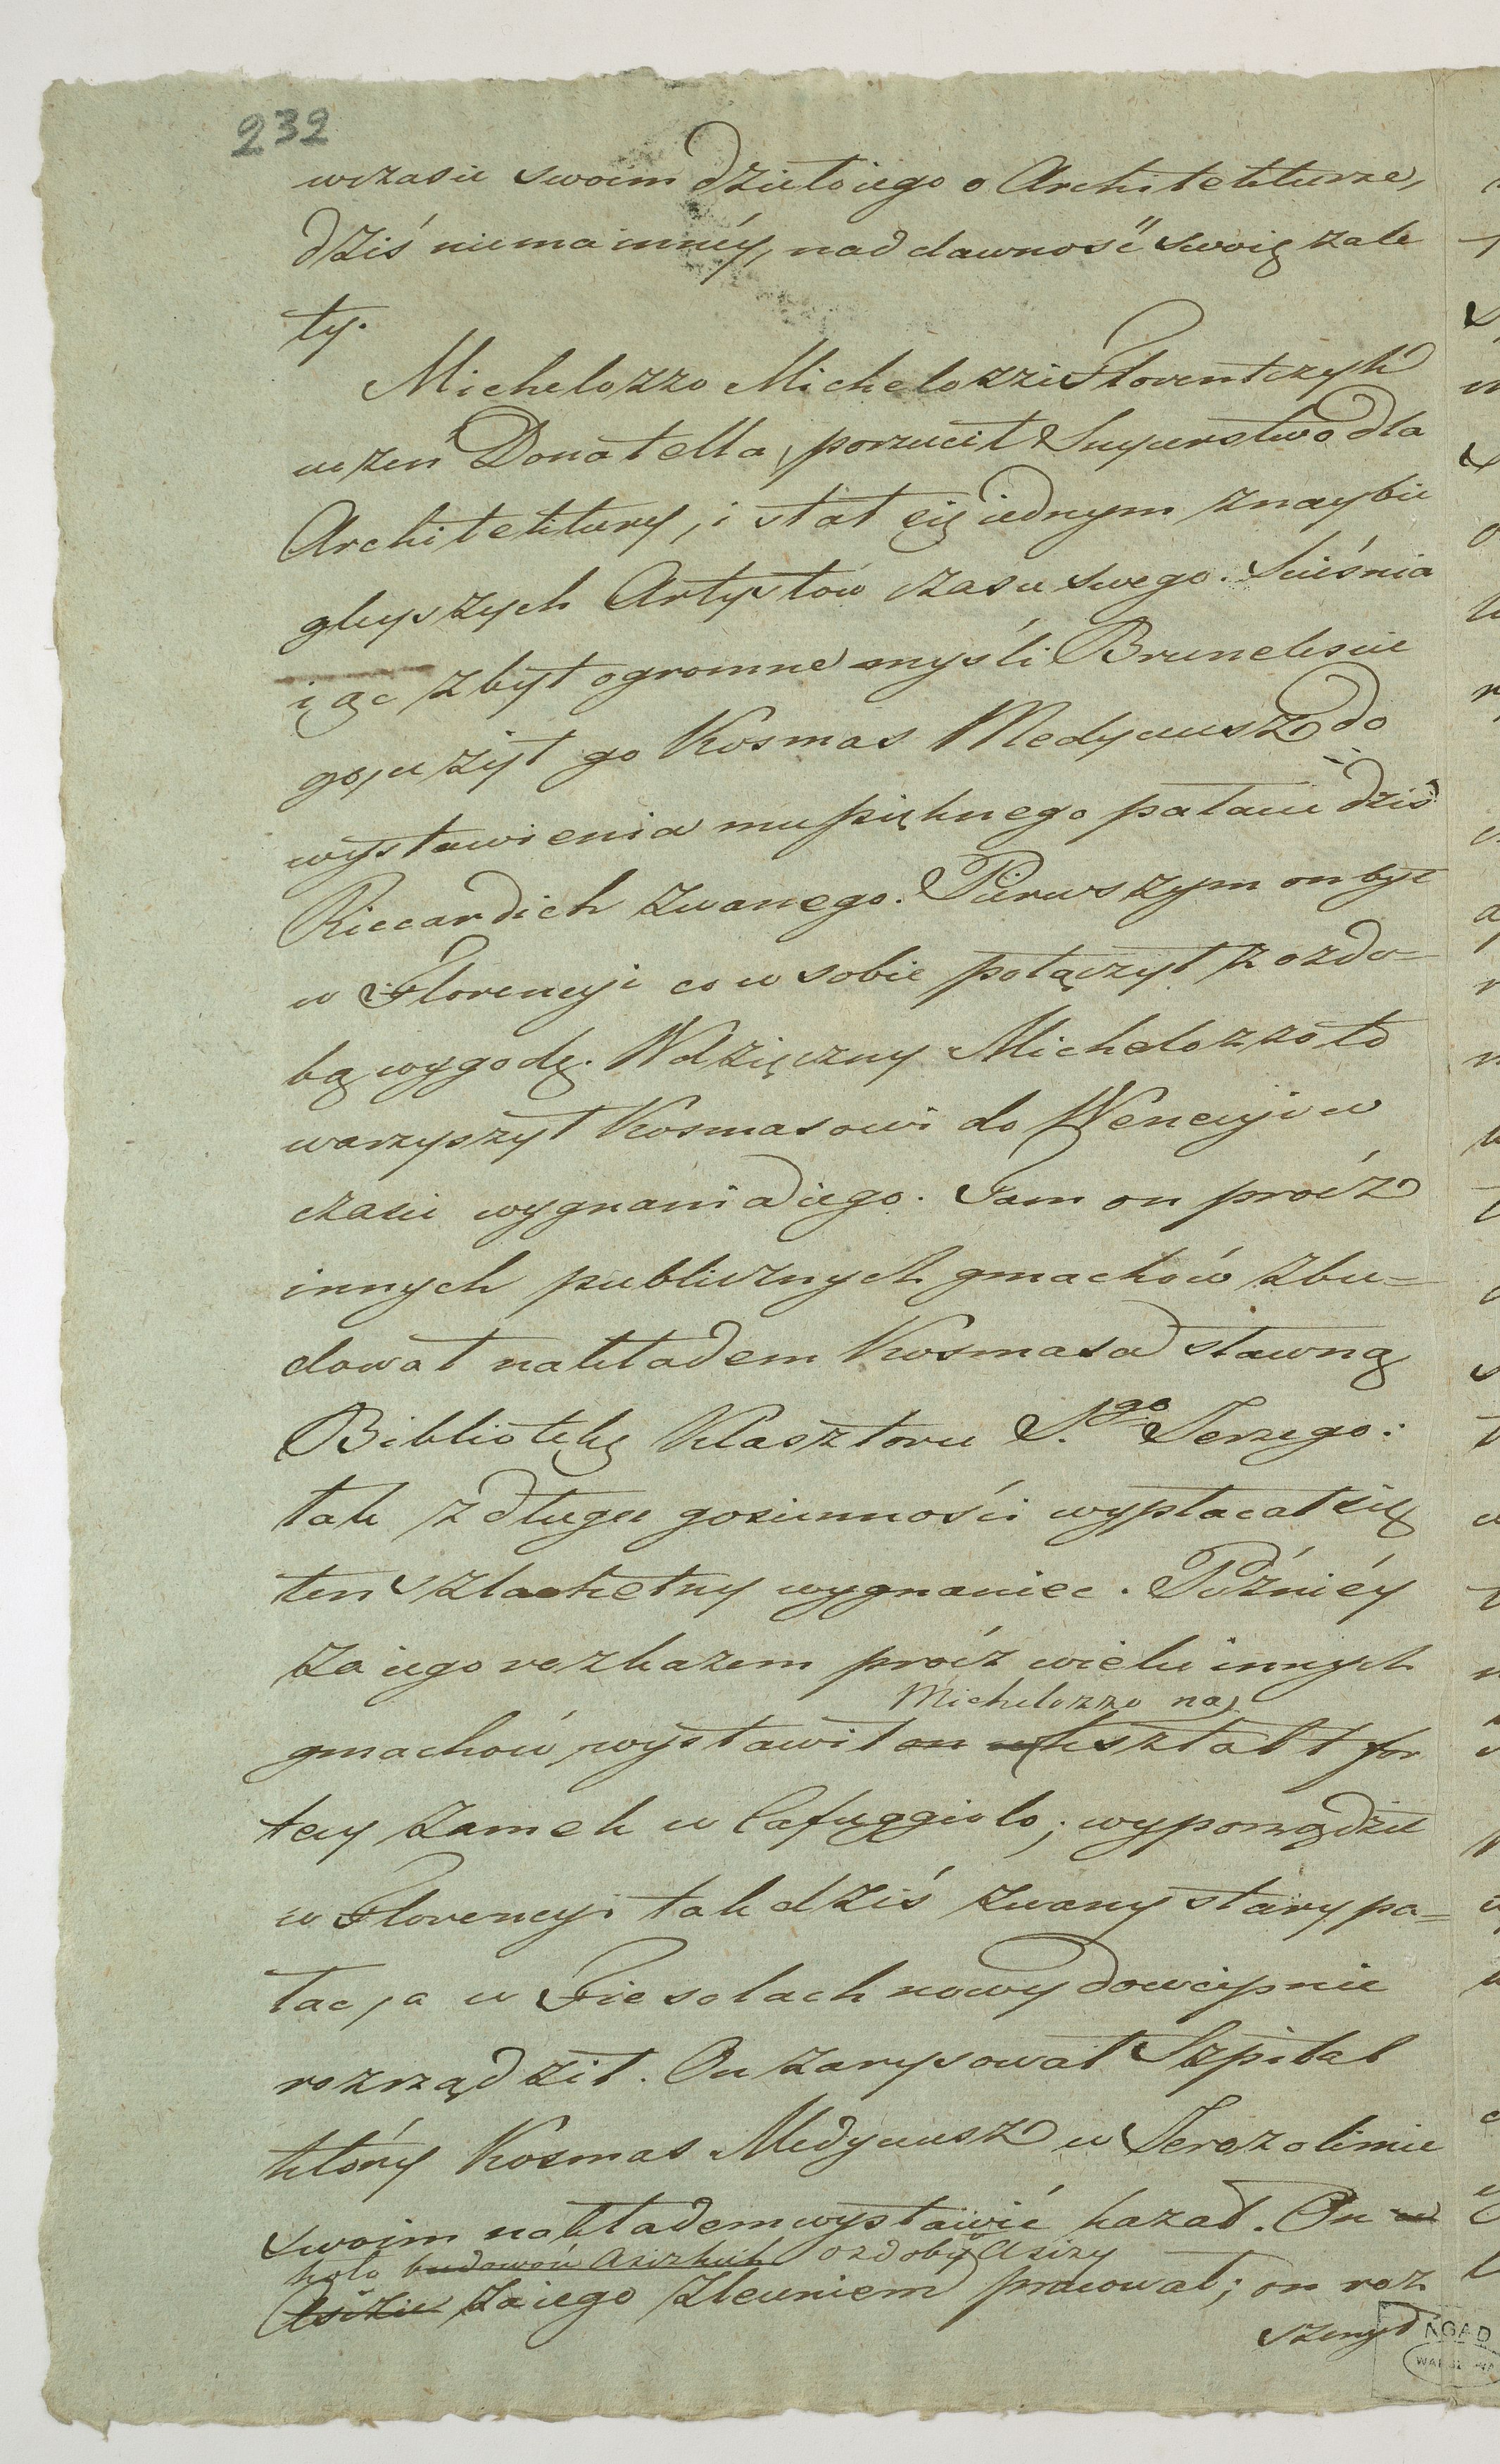 232
wczasie swoim dzieło iego o Architekturze,
dziś niema innéy, nad dawność swoię zale
ty.
Michelozzo Michelozzi Florentczyk
uczeń Donatella, porzucił Snycerstwo dla
Architektury, i stał się iednym znaybie
gleyszych Artystów czasu swego. Sciesnia
iąc zbyt ogromne myśli Brunelescie
go, użył go Kosmas Medyceusz do
wystawienia mu pięknego pałacu dziś
Riccardich zwanego. Pierwszym on był
w Florencyi co w sobie połączył z ozdo=
bą wygodę. Wdzięczny Michelozzo to
warzyszył Kosmasowi do Wenecyi w
czasie wygnania iego. Tam on prócz
innych publicznych gmachów zbu=
dował nakładem Kosmasa sławną
Bibliotekę Klasztoru S.go Jerzego:
tak z długu gościnności wypłacał się
ten szlachetny wygnaniec. Późniéy
za iego rozkazem prócz wielu innych
Michelozzo na
gmachów, wystawił on w kształt for
tecy zamek w Cafaggiolo; wyporządził
w Florencyi tak dziś zwany stary pa=
łac, a w Fiesolach nowy dowcipnie
rozrządził. On zarysował Szpital
który Kosmas Medyceusz w Jerozolimie
swoim nakładem wystawić kazał. On w
koło budowań Asizkich ozdoby Asizy
Asizie za iego zleceniem pracował; on roz
szerzył
AGAD
WARSZAWA